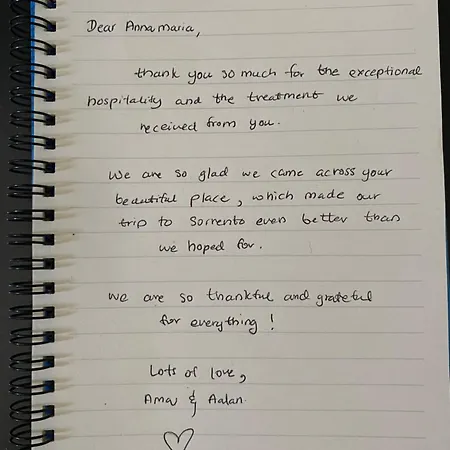 Dear Annamaria,
thank you so much for the exceptional
hospitality and the treatment we
received from you.
We are so glad we came across your
beautiful place, which made our
trip to Sorrento even better than
we hoped for.
We are so thankful and grateful
for everything!
Lots of love,
& Aalan